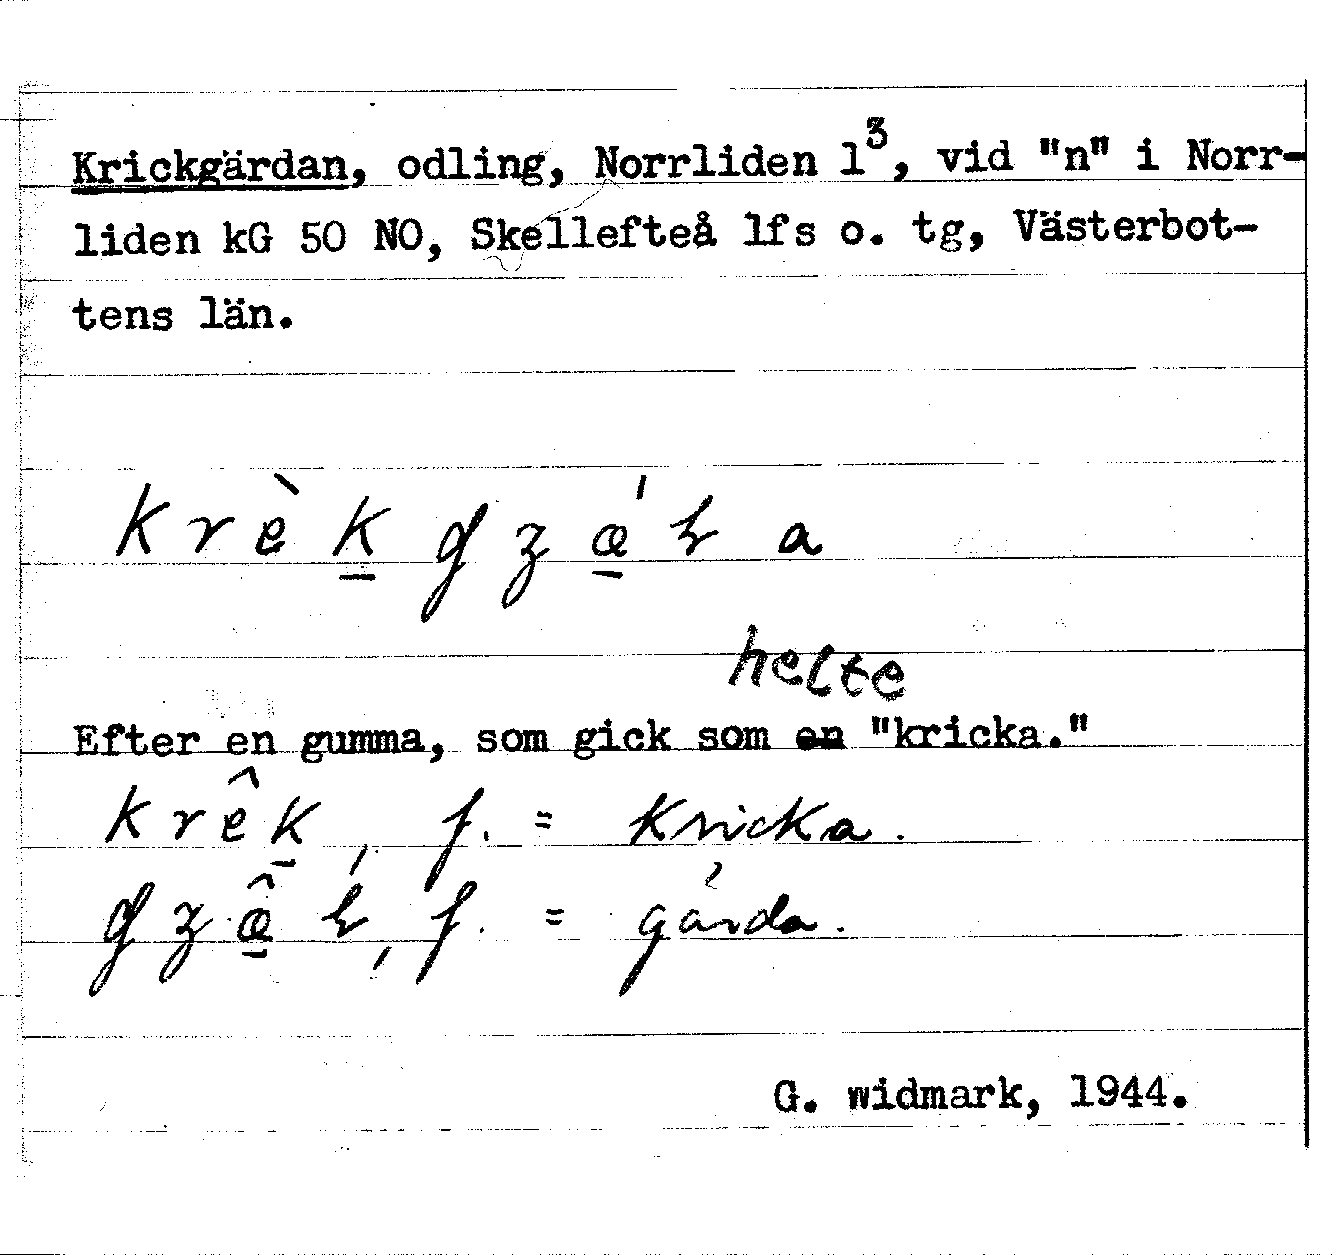 Krickgärdan, odling, Norrliden 1³, vid "n" i Norr-
liden kG 50 NO, Skellefteå lfs o. tg, Västerbot-
tens län.
helte
Efter en gumma, som gick som en "kricka."
f. = kricka.
f. = gärda.
G. widmark, 1944.